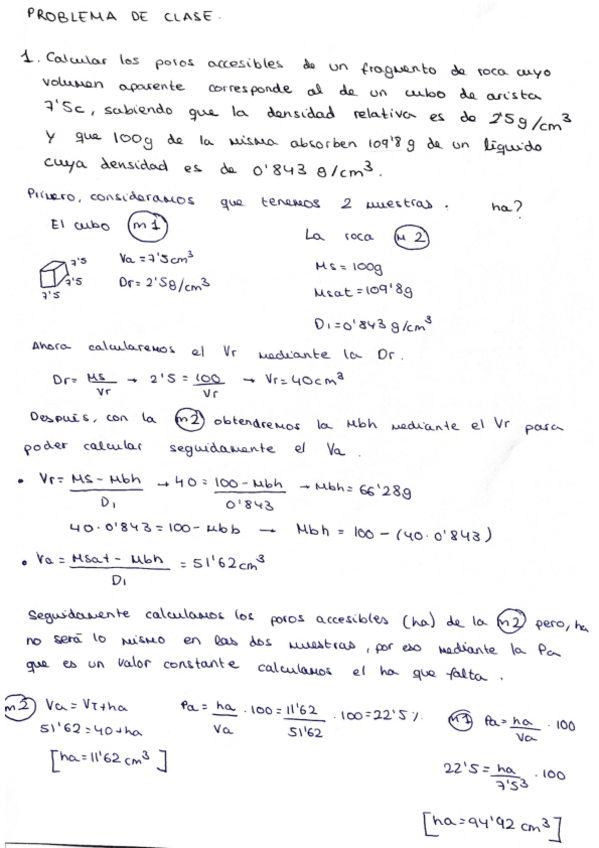 PROBLEMA DE CLASE.
1. Calcular los poros accesibles de un fragmento de roca cuyo
volumen aparente corresponde al de un cubo de arista
7'5c, sabiendo que la densidad relativa es de 2'5g/cm³
y que 100g de la misma absorben 109'8 g de un líquido
cuya densidad es de 0'843 g/cm³.
Primero, consideramos que tenemos 2 muestras. ha?
El cubo (m1)
7'5
7'5
7'5
Va = 7'5cm³
Dr = 2'5g/cm³
La roca (M2)
Ms = 100g
Msat = 109'8g
D₁ = 0'843 g/cm³
Ahora calcularemos el Vr mediante la Dr.
Dr = Ms/Vr → 2'5 = 100/Vr → Vr = 40cm³
Después, con la (m2) obtendremos la Mbh mediante el Vr para
poder calcular seguidamente el Va.
• Vr = Ms - Mbh/D₁ → 40 = 100 - Mbh/0'843 → Mbh = 66'28g
40·0'843 = 100 - Mbb → Mbh = 100 - (40·0'843)
• Va = Msat - Mbh/D₁ = 51'62cm³
Seguidamente calculamos los poros accesibles (ha) de la (m2) pero, ha
no será lo mismo en las dos muestras, por eso mediante la Pa
que es un valor constante calculamos el ha que falta.
(m2) Va = Vr + ha
51'62 = 40 + ha
[ha = 11'62 cm³]
Pa = ha/Va · 100 = 11'62/51'62 · 100 = 22'5%
(M1) Pa = ha/Va · 100
22'5 = ha/7'5³ · 100
[ha = 94'92 cm³]